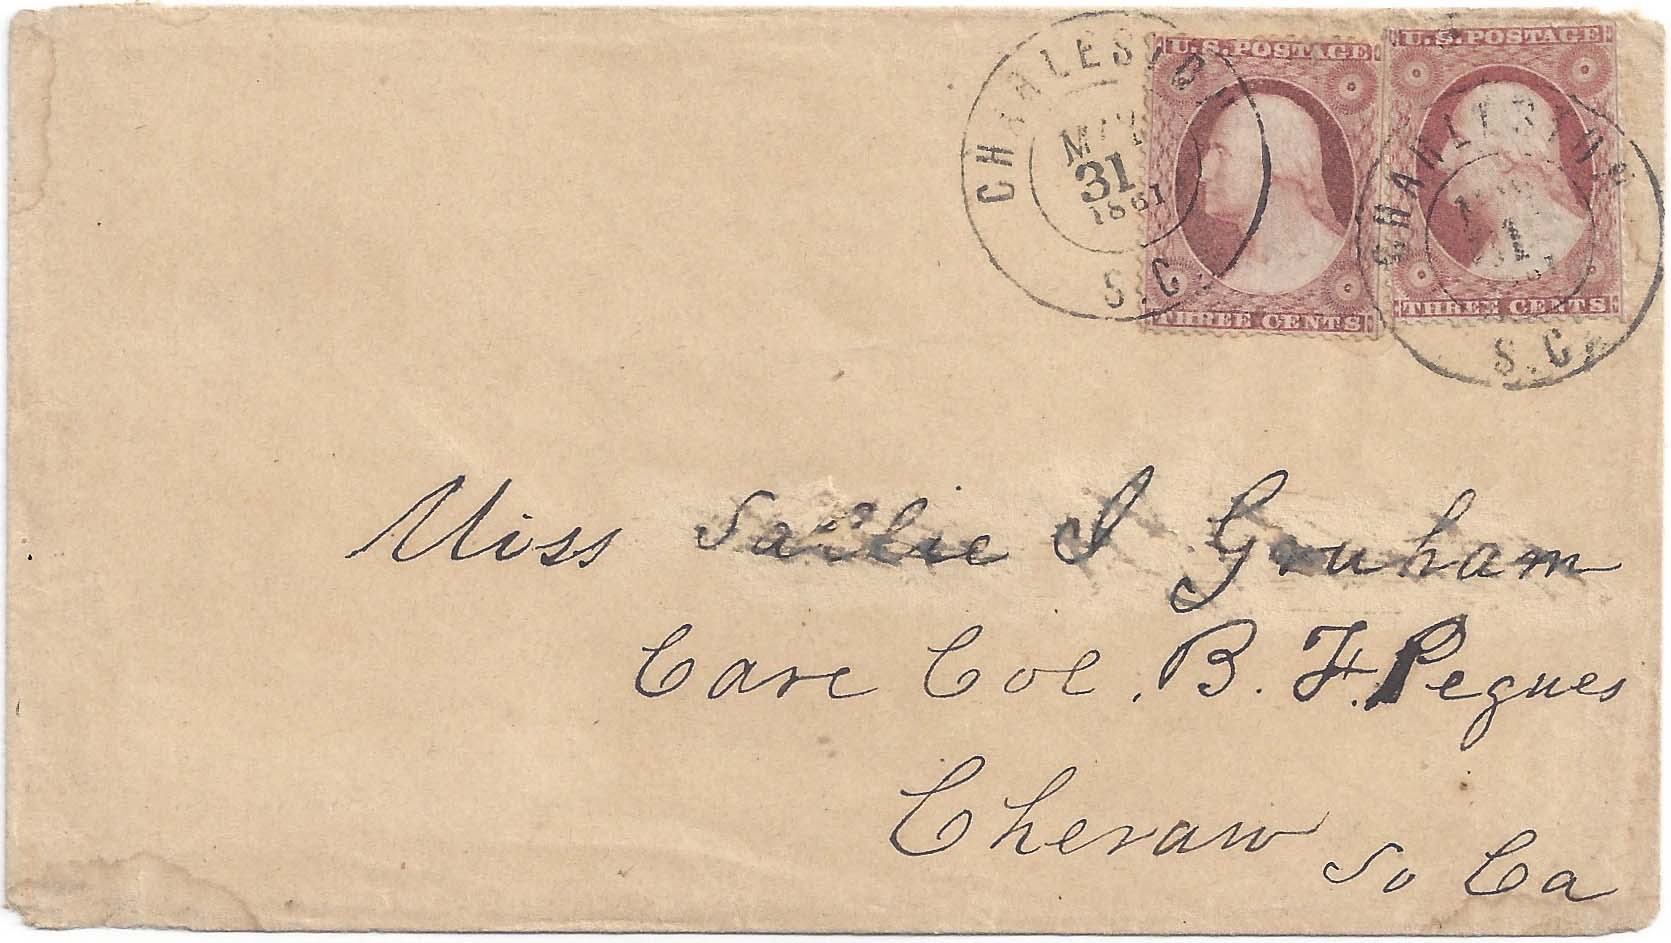 U.S. POSTAGE
THREE CENTS
U.S. POSTAGE
THREE CENTS
CHARLESTO
31
1861
S.C.
CHARLESTON
1
S.C.
Miss Sallie J Graham
Care Col. B. F. Pegues
Cheraw
So Ca